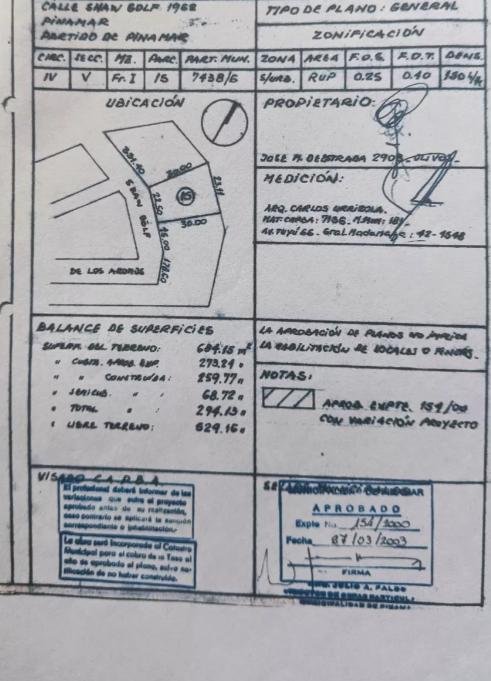 CALLE SHAW GOLF 1968
PINAMAR
PARTIDO DE PINAMAR
TIPO DE PLANO: GENERAL
ZONIFICACIÓN
CIRC. SECC. MZ. PARC. PART. MUN. ZONA AREA F.O.S. F.O.T. DENS.
IV V Fr. I 15 7438/6 S/URB. RUP 0.25 0.40 150
UBICACIÓN
391.40
30.00
23.
SHAW GOLF
22.50
15
30.00
46.00
178.00
DE LOS
PROPIETARIO:
JOSE M. DE ESTRADA 290 OLIVOS
MEDICIÓN:
ARQ. CARLOS
Gral. Madariaga: 42-1548
BALANCE DE SUPERFICIES
SUPERF. DEL TERRENO: m²
" CUBTA. APROB. EXP. 273.24 "
" " CONSTRUÍDA: 259.77 "
" SEMICUB. " " 68.72 "
" TOTAL " " 294.13 "
" LIBRE TERRENO: 529.16 "
LA APROBACIÓN DE PLANOS NO IMPLICA
LA HABILITACIÓN DE LOCALES O FINCAS.
NOTAS:
APROB. EXPTE. 154/00
CON VARIACIÓN PROYECTO
VISADO C.A.P.B.A.
El profesional deberá informar de las
variaciones que sufra el proyecto
aprobado antes de su realización,
caso contrario se aplicará la sanción
correspondiente o inhabilitación.
La obra será incorporada al Catastro
Municipal para el cobro de la Tasa al
año de aprobado el plano, salvo notificación
de no haber construido.
APROBADO
Expte No. 154/2000
Fecha 27/03/2003
FIRMA
JULIO A.
MUNICIPALIDAD DE PINAMAR